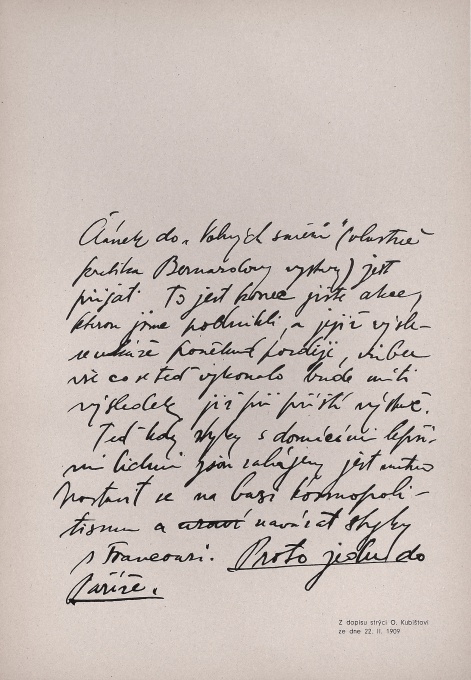 Článek do „Volných směrů" (vlastně
kritika Bernardovy výstavy) jest
přijat. To jest konec jisté akce,
kterou jsme podnikli, a jejíž výsle-
se ukáže poněkud později,
vše co se teď vykonalo bude míti
výsledek již při příští výstavě.
Teď kdy styky s domácími lepší-
mi lidmi jsou zahájeny jest nutno
postavit se na basi kosmopoli-
tismu a navázat styky
s Francouzi. Proto jedu do
Paříže.
Z dopisu strýci O. Kubištovi
ze dne 22. II. 1909